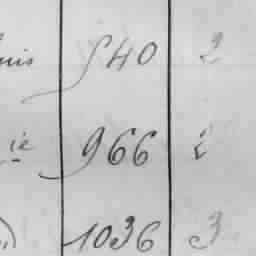 540 2
ie 966 2
1036 3